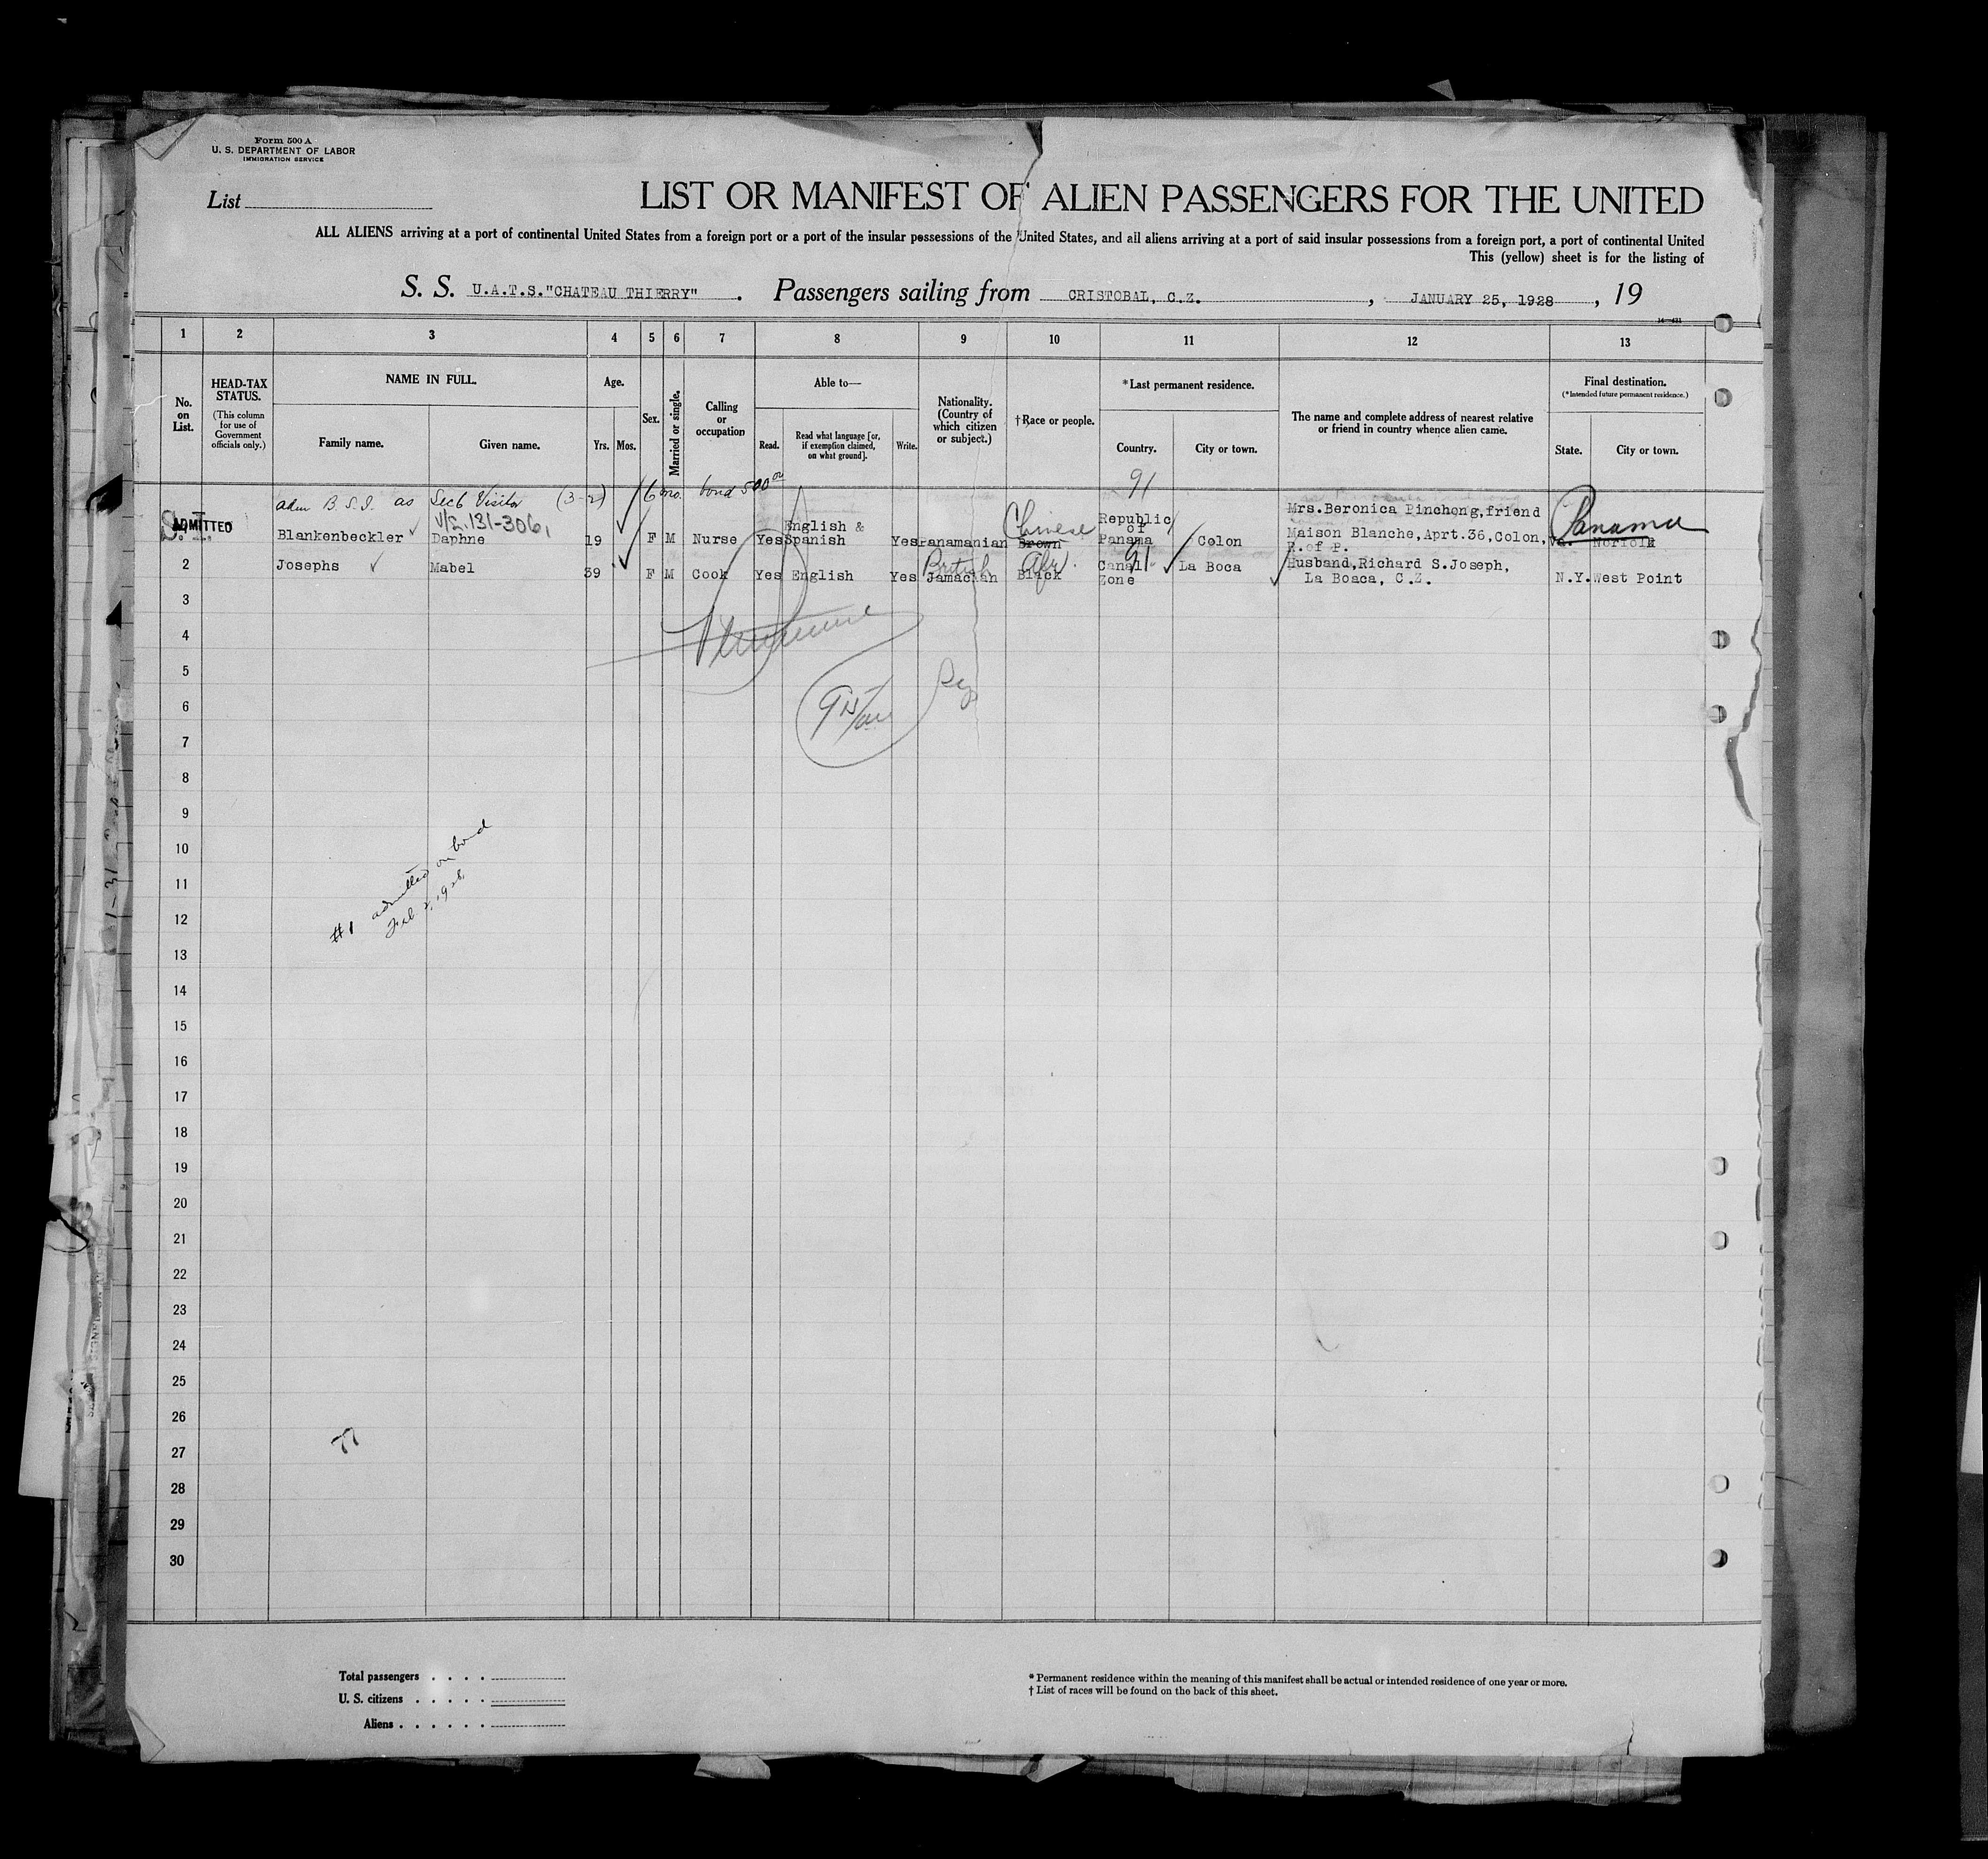 Form 500 A
U. S. DEPARTMENT OF LABOR
IMMIGRATION SERVICE
List
LIST OR MANIFEST OF ALIEN PASSENGERS FOR THE UNITED
ALL ALIENS arriving at a port of continental United States from a foreign port or a port of the insular possessions of the United States, and all aliens arriving at a port of said insular possessions from a foreign port, a port of continental United
This (yellow) sheet is for the listing of
S. S. U.A.T.S."CHATEAU THIERRY". Passengers sailing from CRISTOBAL, C.Z., JANUARY 25, 1928, 19
1 2 3 4 5 6 7 8 9 10 11 12 13
No. on List.
HEAD-TAX STATUS.
(This column for use of Government officials only.)
NAME IN FULL.
Family name. Given name.
Age.
Yrs. Mos.
Sex.
Married or single.
Calling or occupation
Able to—
Read. Read what language [or, if exemption claimed, on what ground]. Write.
Nationality. (Country of which citizen or subject.)
†Race or people.
*Last permanent residence.
Country. City or town.
The name and complete address of nearest relative or friend in country whence alien came.
Final destination.
(*Intended future permanent residence.)
State. City or town.
adm B.S.I. as Sec6 Visitor (3-2) 6 mo. bond 500 00 91
S.I. ADMITTED V/S.131-306,
Blankenbeckler Daphne 19 F M Nurse Yes English & Spanish Yes Panamanian Brown Chinese Republic of Panama Colon Mrs.Beronica Pinchong,friend
Maison Blanche,Aprt.36,Colon,
R.of P. Va. Norfolk Panama
2 Josephs Mabel 39 F M Cook Yes English Yes British Jamacian Black Afr. Canal Zone 91 La Boca Husband,Richard S.Joseph,
La Boaca, C.Z. N.Y. West Point
3
4
5
6
7
8
9
10
11
12
13
14
15
16
17
18
19
20
21
22
23
24
25
26
27
28
29
30
#1 admitted on bond
Feb 2, 1928,
77
Total passengers . . . .
U. S. citizens . . . . .
Aliens . . . . . .
* Permanent residence within the meaning of this manifest shall be actual or intended residence of one year or more.
† List of races will be found on the back of this sheet.